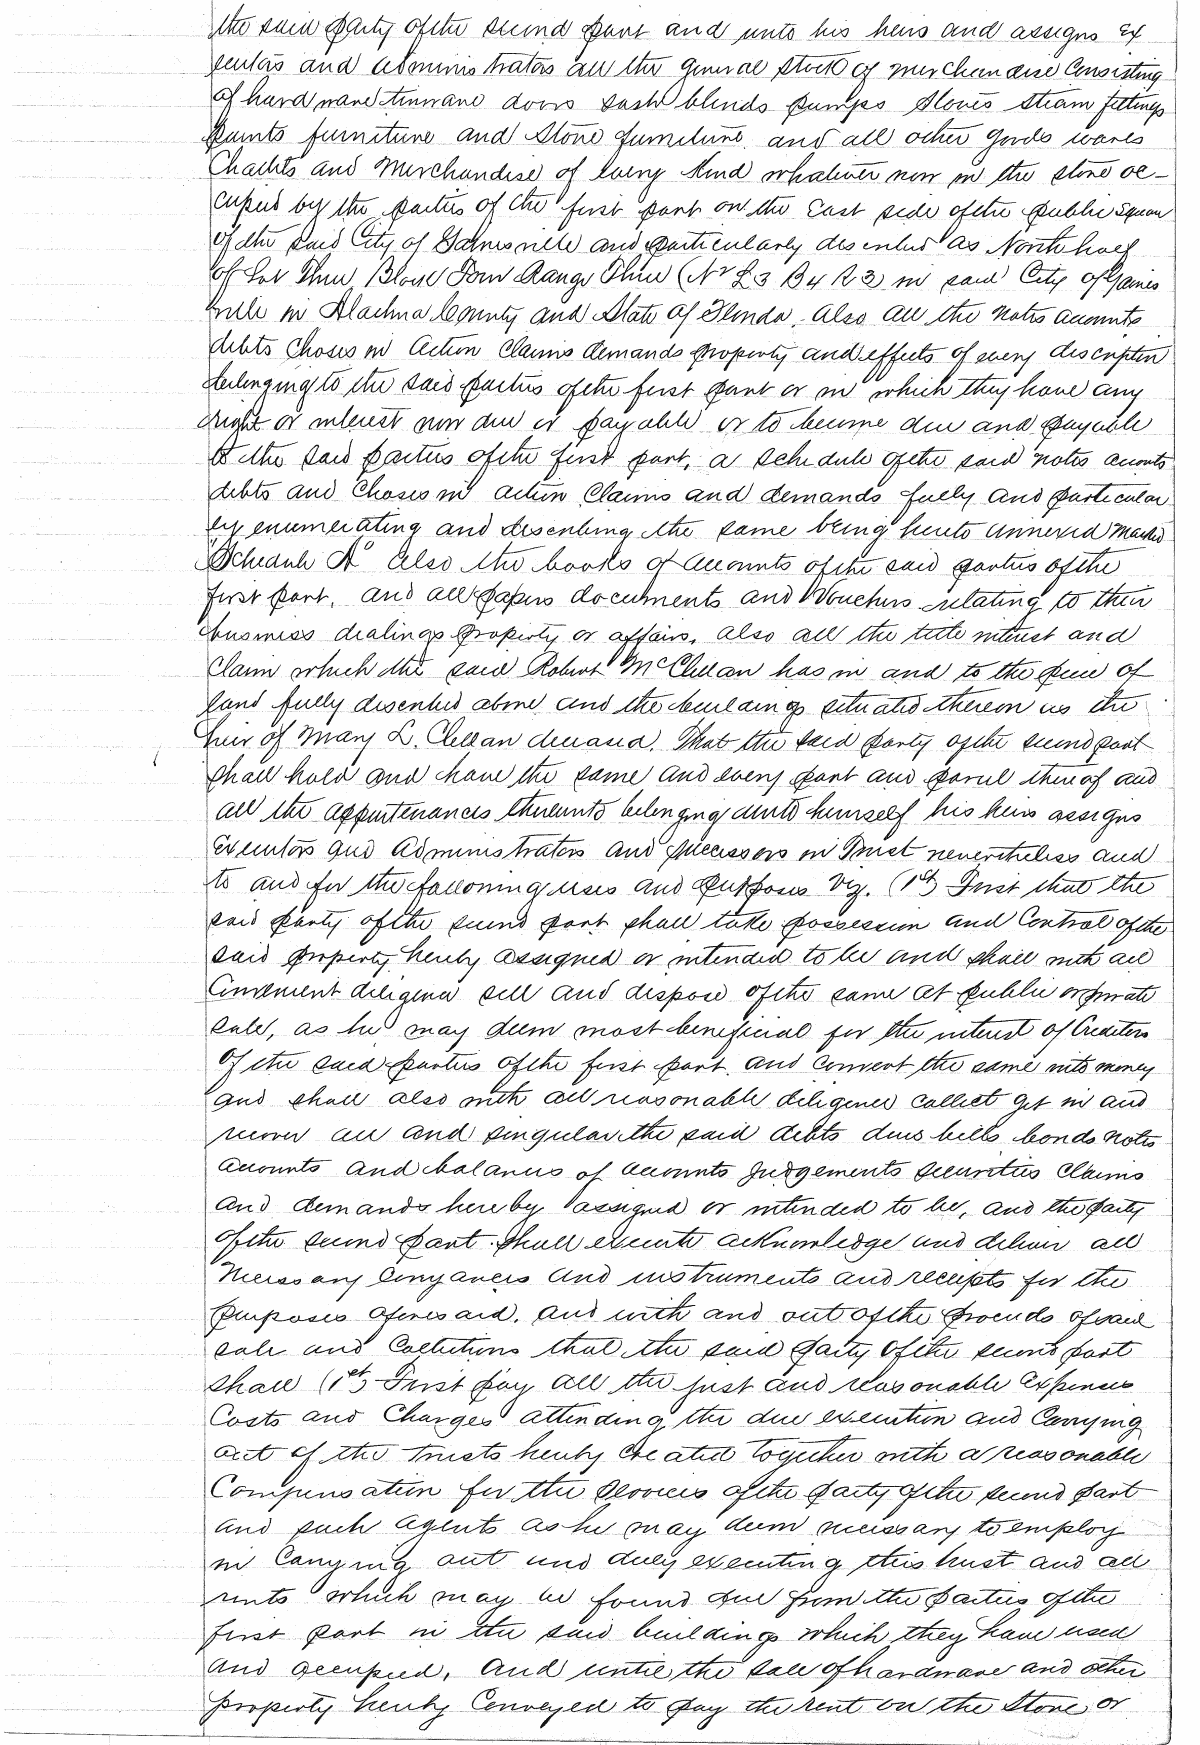 the said party of the second part and unto his heirs and assigns Ex
ecutors and administrators all the general stock of merchandise Consisting
of hardware tinware doors sash blinds pumps stoves steam fittings
paints furniture and Store furniture, and all other goods wares
Chattls and Merchandise of every kind whatever now in the store oc-
cupied by the parties of the first part on the East side of the public Square
of the said City of Gainesville and particularly described as North half
of Lot Three Block Four Range Three (N½ L3 B4 R3) in said City of Gaines
ville in Alachua County and State of Florida. Also all the notes accounts
debts Choses in Action Claims demands property and effects of every discription
belonging to the said parties of the first part or in which they have any
right or interest now due or payable or to become due and payable
to the said parties of the first part, a schedule of the said notes accounts
debts and Choses in action Claims and demands fully and particular
ly enumerating and describing the same being hereto annexed Marked
"Schedule A" also the books of accounts of the said parties of the
first part, and all papers documents and Vouchers relating to their
business dealings property or affairs, also all the title interest and
Claim which the said Robert McClellan has in and to the piece of
land fully described above and the buildings situated thereon as the
heir of Mary L. Clellan deceased. That the said party of the second part
shall hold and have the same and every part and parcel thereof and
all the appurtenances thereunto belonging unto himself his heirs assigns
Executors and Administrators and successors in Trust nevertheless and
to and for the following uses and purposes Viz. (1st) First that the
said party of the second part shall take possession and Control of the
said property hereby assigned or intended to be and shall with all
Convenient diligence sell and dispose of the same at public or private
sale, as he may deem most beneficial for the interest of Creditors
of the said parties of the first part, and convert the same into money
and shall also with all reasonable diligence collect get in and
recover all and singular the said debts dues bills bonds notes
accounts and balances of accounts Judgements securities Claims
and demands hereby assigned or intended to be, and the party
of the second part shall execute acknowledge and deliver all
Necessary Conyances and instruments and receipts for the
purposes aforesaid. and with and out of the proceeds of said
sale and Collections that the said party of the second part
shall (1st) First pay all the just and reasonable expenses
Costs and Charges attending the due execution and Carrying
out of the trusts hereby created together with a reasonable
Compensation for the Services of the party of the second part
and such agents as he may deem necessary to employ
in Carrying out and duly executing this trust and all
rents which may be found due from the Parties of the
first part in the said buildings which they have used
and occupied, and until the sale of hardware and other
property hereby Conveyed to pay the rent on the Store or